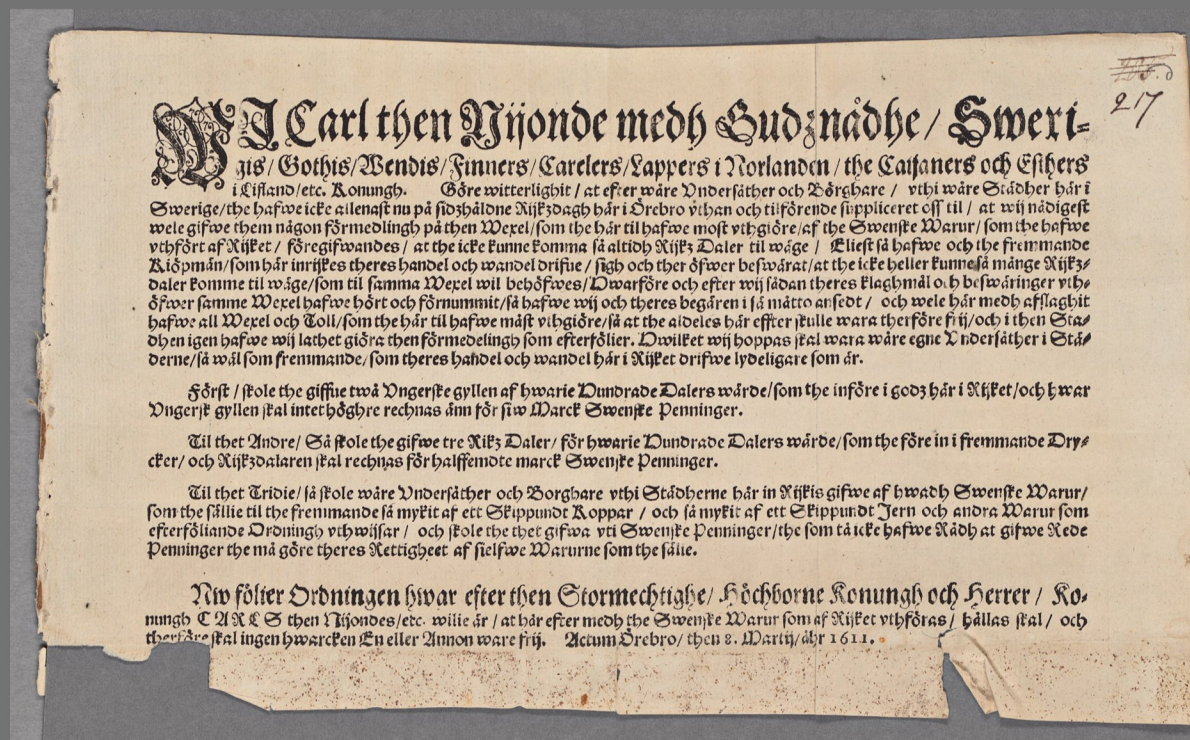 217
WJ Carl then Nijonde medh Gudznådhe / Sweri⸗
gis / Gothis / Wendis / Finners / Carelers / Lappers i Norlanden / the Caijaners och Esthers
i Lifland / etc. Konungh. Göre witterlighit / at efter wåre Vndersåther och Börghare / vthi wåre Städher här i
Swerige / the hafwe icke allenast nu på sidzhåldne Rijkzdagh här i Örebro vthan och tilförende suppliceret oss til / at wij nådigest
wele gifwe them någon förmedlingh på then Wexel / som the här til hafwe most vthgiöre / af the Swenske Warur / som the hafwe
vthfört af Rijket / föregifwandes / at the icke kunne komma så altidh Rijkz Daler til wäge / Eliest så hafwe och the fremmande
Kiöpmän / som här inrijkes theres handel och wandel drifue / sigh och ther öfwer beswärat / at the icke heller kunne så månge Rijkz⸗
daler komme til wäge / som til samma Wexel wil behöfwes / Hwarföre och efter wij sådan theres klaghmål och beswäringer vth⸗
öfwer samme Wexel hafwe hört och förnummit / så hafwe wij och theres begären i så måtto ansedt / och wele här medh afslaghit
hafwe all Wexel och Toll / som the här til hafwe måst vthgiöre / så at the aldeles här effter skulle wara therföre frij / och i then Sta⸗
dhen igen hafwe wij lathet giöra then förmedelingh som efterfölier. Hwilket wij hoppas skal wara wåre egne Vndersåther i Stä⸗
derne / så wäl som fremmande / som theres handel och wandel här i Rijket drifwe lydeligare som är.
Först / skole the giffue twå Vngerske gyllen af hwarie Hundrade Dalers wärde / som the införe i godz här i Rijket / och hwar
Vngersk gyllen skal intet höghre rechnas änn för siw Marck Swenske Penninger.
Til thet Andre / Så skole the gifwe tre Rikz Daler / för hwarie Hundrade Dalers wärde / som the före in i fremmande Dry⸗
cker / och Rijkzdalaren skal rechnas för halffemdte marck Swenske Penninger.
Til thet Tridie / så skole wåre Vndersåther och Borghare vthi Städherne här in Rijkis gifwe af hwadh Swenske Warur /
som the sällie til the fremmande så mykit af ett Skippundt Koppar / och så mykit af ett Skippundt Jern och andra Warur som
efterföliande Ordningh vthwijsar / och skole the thet gifwa vti Swenske Penninger / the som tå icke hafwe Rådh at gifwe Rede
Penninger the må göre theres Rettigheet af sielfwe Warurne som the sälie.
Nw fölier Ordningen hwar efter then Stormechtighe / Höchborne Konungh och Herrer / Ko⸗
nungh CARLS then Nijondes / etc. wilie är / at här efter medh the Swenske Warur som af Rijket vthföras / hållas skal / och
therföre skal ingen hwarcken En eller Annon ware frij. Actum Örebro / then 8. Martij / åhr 1611.